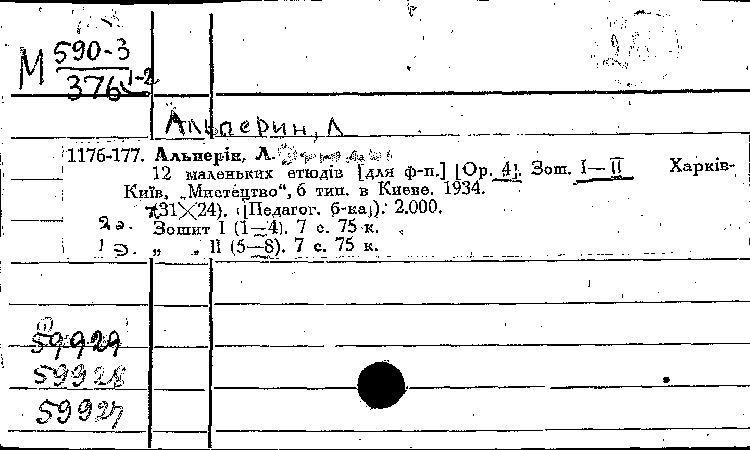 М 590-3
376 1-2
Альперин, Л
1176-177. Альперін, Л.
12 маленьких етюдів [для ф-п.] [Ор. 4]. Зош. I—II Харків-
Київ, „Мистецтво“, 6 тип. в Києве. 1934.
(31×24). ([Педагог. б-ка]). 2.000.
2э. Зошит I (1—4). 7 с. 75 к.
1э. „ „ II (5—8). 7 с. 75 к.
59929
59928
59927